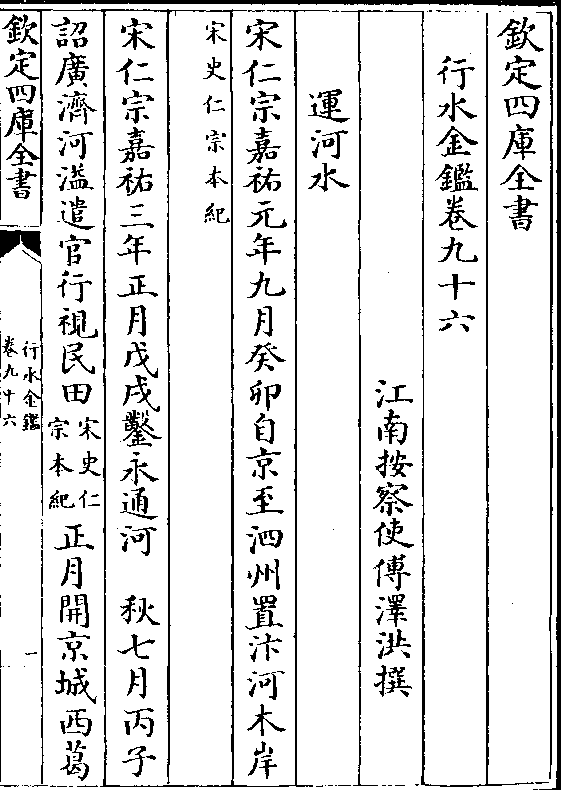 欽定四庫全書
行水金鑑卷九十六
江南按察使傅澤洪撰
運河水
宋仁宗嘉祐元年九月癸卯自京至泗州置汴河木岸
宋史仁宗本紀
宋仁宗嘉祐三年正月戊戌鑿永通河　秋七月丙子
詔廣濟河溢遣官行視民田宋史仁宗本紀正月開京城西葛
欽定四庫全書
行水金鑑
卷九十六
一